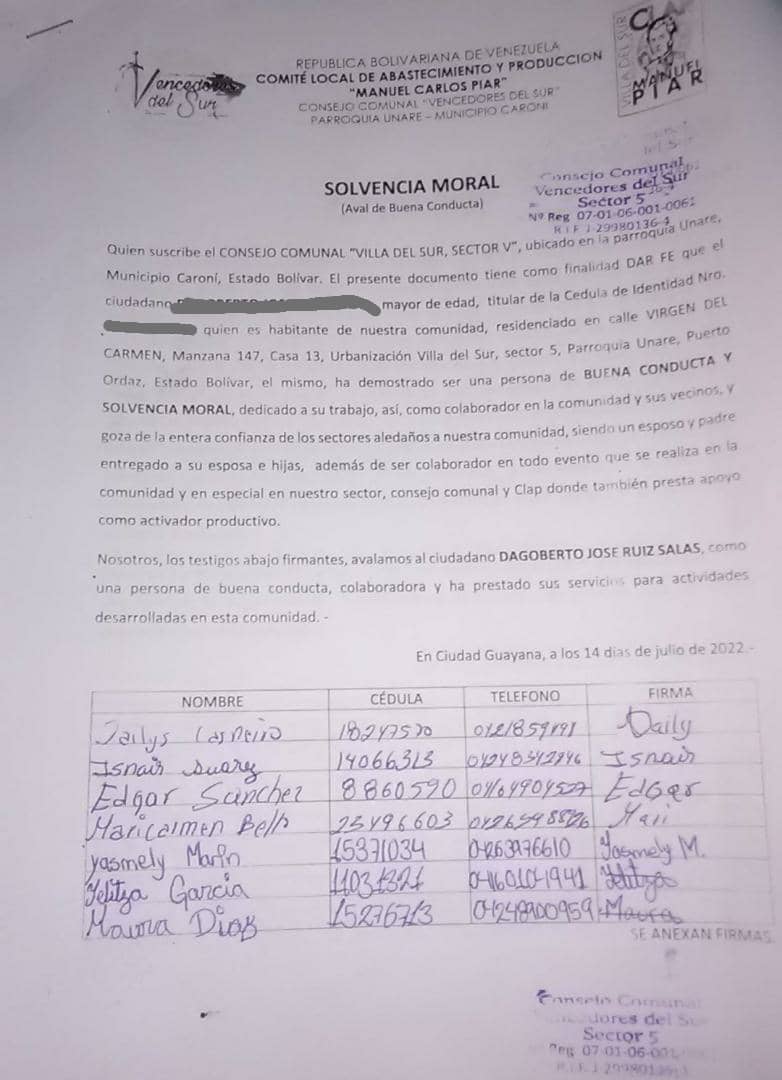 Vencedores
del Sur
REPUBLICA BOLIVARIANA DE VENEZUELA
COMITÉ LOCAL DE ABASTECIMIENTO Y PRODUCCION
"MANUEL CARLOS PIAR"
CONSEJO COMUNAL "VENCEDORES DEL SUR"
PARROQUIA UNARE – MUNICIPIO CARONI
VILLA DEL SUR
MANUEL
PIAR
SOLVENCIA MORAL
(Aval de Buena Conducta)
Consejo Comunal
Vencedores del Sur
Sector 5
Nº Reg 07-01-06-001-0061
R.I.F J-29980136-4
Quien suscribe el CONSEJO COMUNAL "VILLA DEL SUR, SECTOR V", ubicado en la parroquia Unare,
Municipio Caroní, Estado Bolívar. El presente documento tiene como finalidad DAR FE que el
ciudadano mayor de edad, titular de la Cedula de Identidad Nro.
quien es habitante de nuestra comunidad, residenciado en calle VIRGEN DEL
CARMEN, Manzana 147, Casa 13, Urbanización Villa del Sur, sector 5, Parroquia Unare, Puerto
Ordaz, Estado Bolívar, el mismo, ha demostrado ser una persona de BUENA CONDUCTA Y
SOLVENCIA MORAL, dedicado a su trabajo, así, como colaborador en la comunidad y sus vecinos, y
goza de la entera confianza de los sectores aledaños a nuestra comunidad, siendo un esposo y padre
entregado a su esposa e hijas, además de ser colaborador en todo evento que se realiza en la
comunidad y en especial en nuestro sector, consejo comunal y Clap donde también presta apoyo
como activador productivo.
Nosotros, los testigos abajo firmantes, avalamos al ciudadano DAGOBERTO JOSE RUIZ SALAS, como
una persona de buena conducta, colaboradora y ha prestado sus servicios para actividades
desarrolladas en esta comunidad. -
En Ciudad Guayana, a los 14 dias de julio de 2022.-
NOMBRE CÉDULA TELEFONO FIRMA
18247520 Daily
Isnair Suarez 14066313 Isnair
Edgar Sanchez 8860590 Edgar
Maricarmen Bello 23496603 Mari
Yasmely Marin 15371034 04263976610 Yasmely M.
Yelitza Garcia Yelitza
Maura Dias 15276713 04248900959 Maura
SE ANEXAN FIRMAS
Consejo Comunal
Sector 5